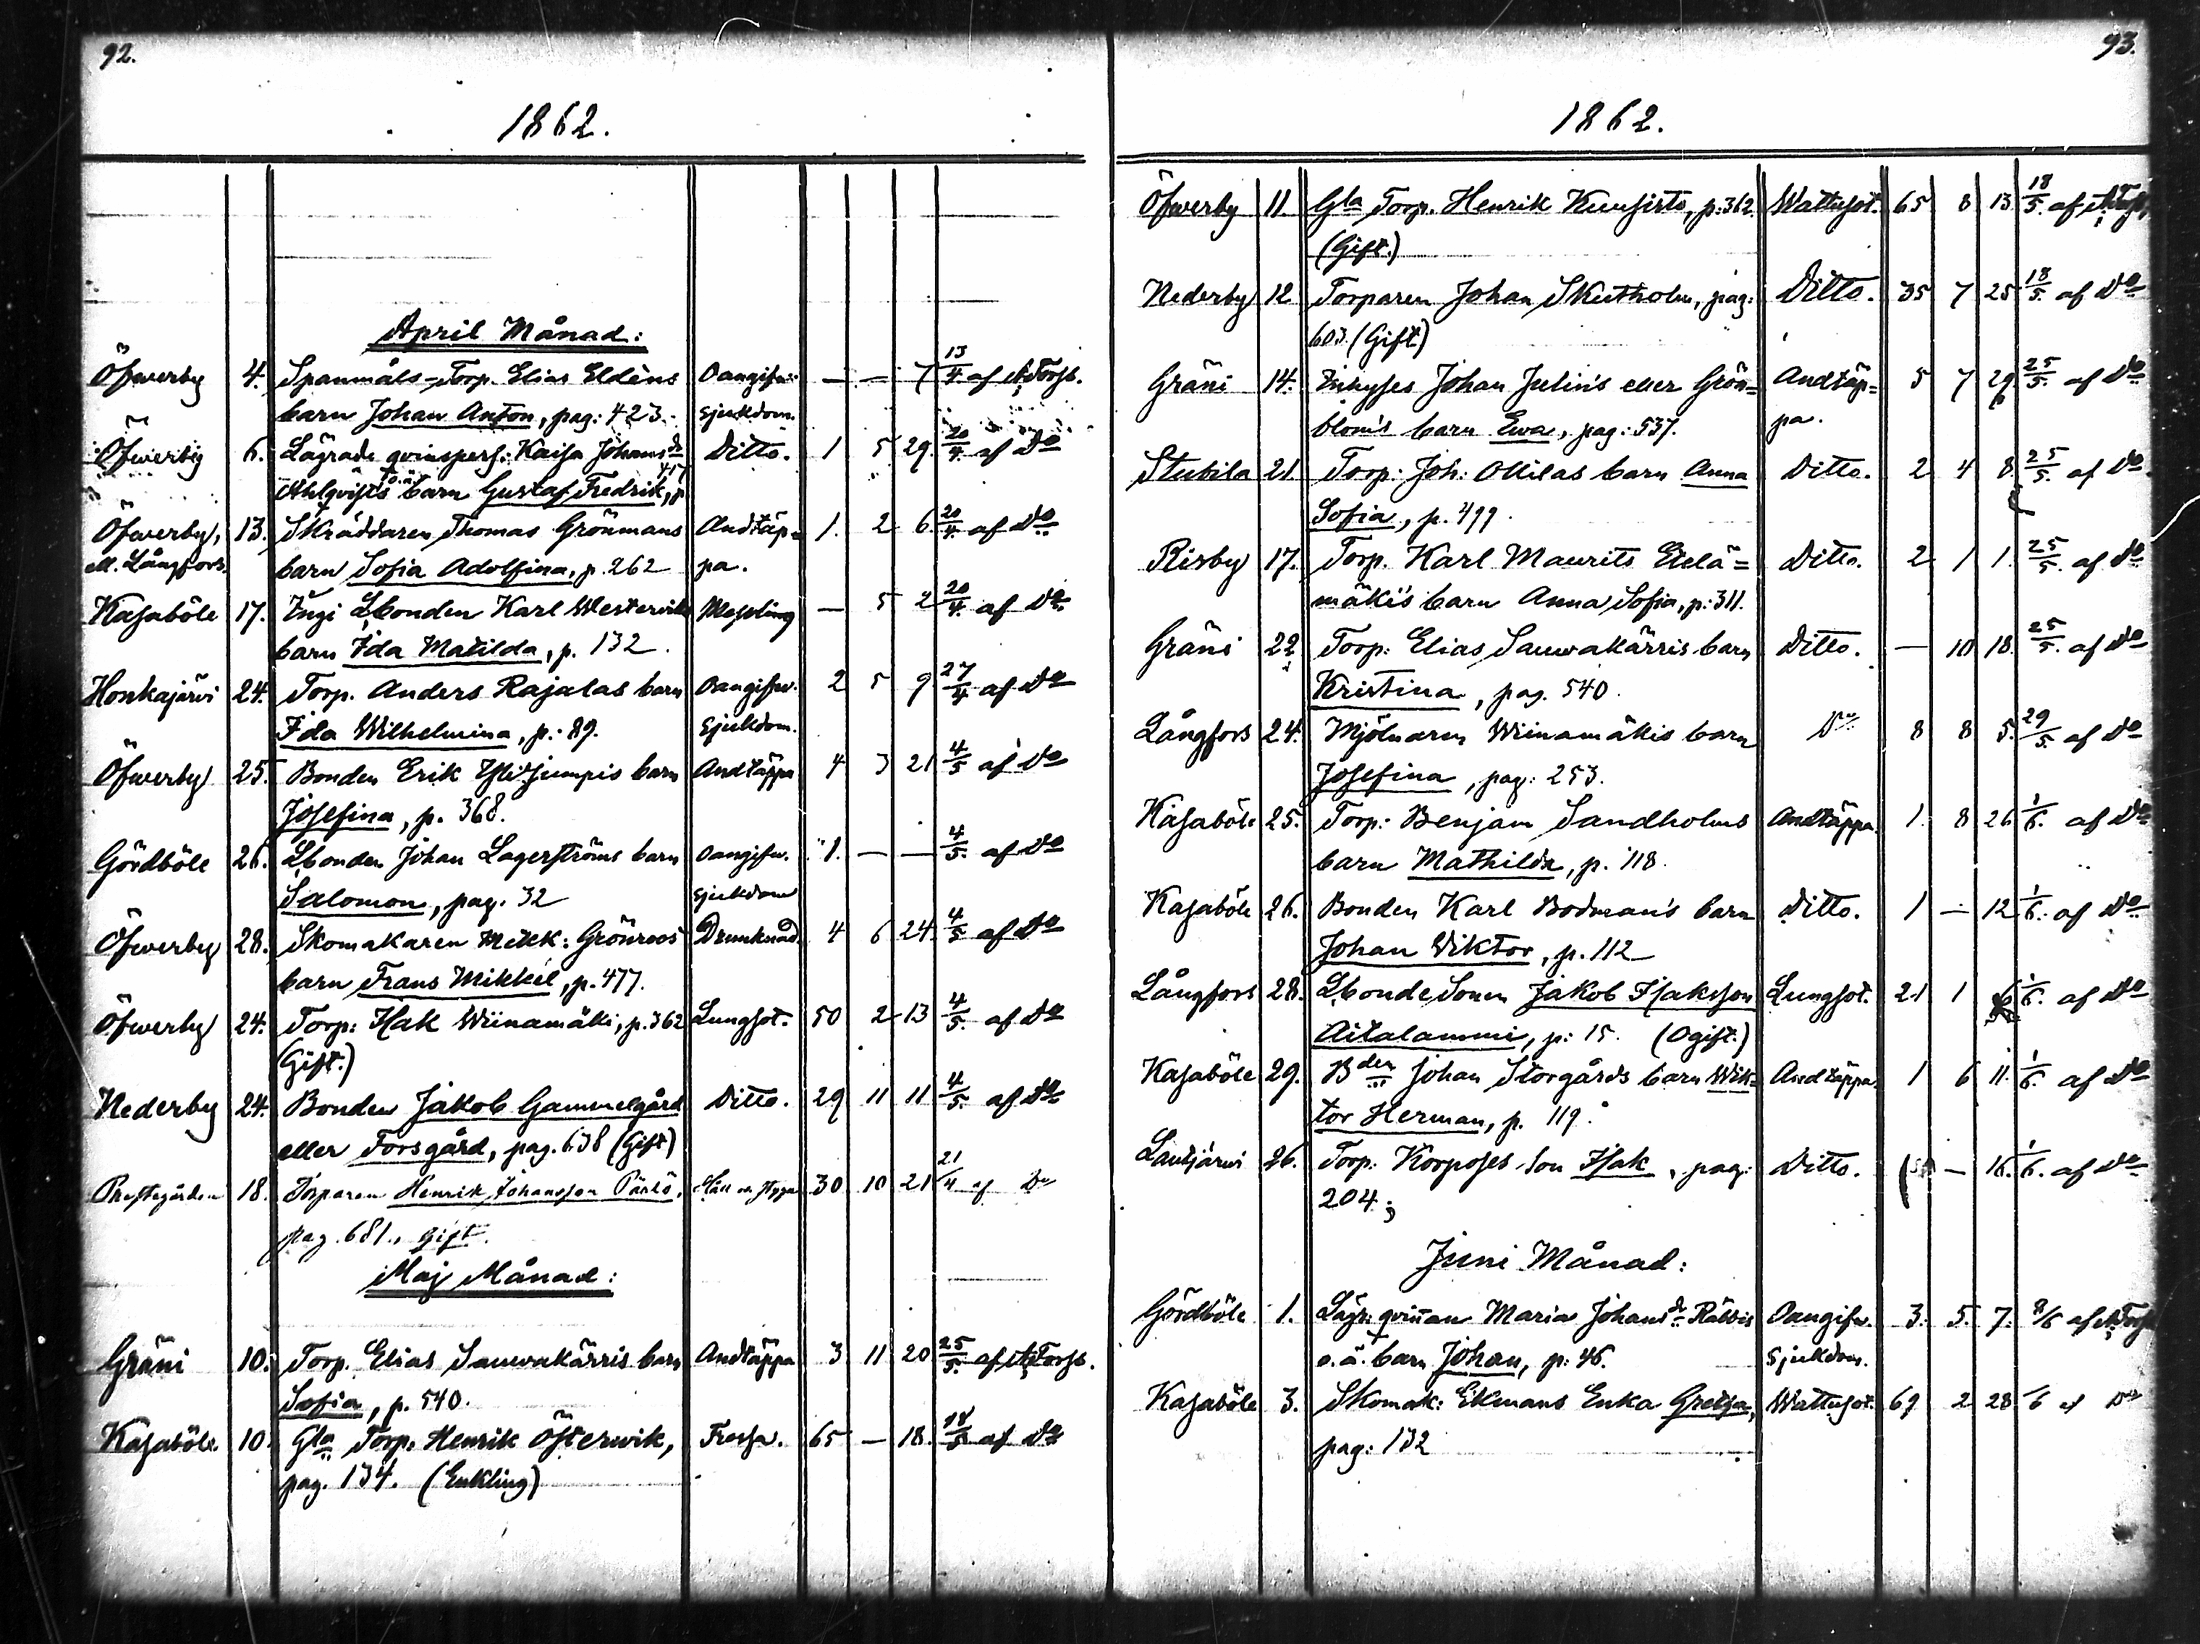 92.
1862.
April Månad:
Öfwerby 4. Spanmåls-Torp. Elias Eldéns Oangifw: — — 7 13/4 af A. Forsb.
barn Johan Anton, pag: 423. sjukdom.
Öfwerby 6. Lägrade qvinspers: Kaisa Johansdr Ditto. 1 5 29. 20/4. af Do
Ahlqvists o.ä. barn Gustaf Fredrik, p 417
Öfwerby, 13. Skräddaren Thomas Grönmans Andtäp- 1. 2 6. 20/4. af Do
ell. Långfors. barn Sofia Adolfina, p. 262 pa.
Kasaböle 17. Ingi Lbonden Karl Westerviks Messling — 5 2 20/4. af Do
barn Ida Matilda, p. 132.
Honkajärvi 24. Torp. Anders Rajalas barn Oangifw. 2 5 9 27/4 af Do
Ida Wilhelmina, p. 89. sjukdom.
Öfwerby 25. Bonden Erik barn Andtäppa 4 3 21 4/5 af Do
Josefina, p. 368.
Gördböle 26. Lbonden Johan Lagerströms barn Oangifw. 1. — — 4/5. af Do
Salomon, pag. 32 sjukdom
Öfwerby 28. Skomakaren Mikk: Grönroos Drunknad 4 6 24. 4/5 af Do
barn Frans Mikkel, p. 477.
Öfwerby 24. Torp: Isak Wiinamäki, p. 362 Lungsot. 50 2 13 4/5. af Do
(Gift.)
Nederby 24. Bonden Jakob Gammelgård Ditto. 29 11 11 4/5. af Do
eller Forsgård, pag. 638 (Gift)
Prestgården 18. Torparen Henrik Johansson Pärlö. 30 10 21 21/4 af Do
pag. 681., gift.
Maj Månad:
Gräni 10. Torp. Elias Sauwakärris barn Andtäppa 3 11 20 25/5. af A. Forsb.
Sofia, p. 540.
Kasaböle 10. Gla Torp. Henrik Österwik, Frossa. 65 — 18. 18/5 af Do
pag. 134. (Enkling)
93.
1862.
Öfwerby 11. Gla Torp. Henrik Kuusisto, p: 362. Wattusot. 65 8 13 18/5. af A. Forsb.
(Gift.)
Nederby 12 Torparen Johan Skutholm, pag: Ditto. 35 7 25 18/5. af Do
603. (Gift)
Gräni 14. Inhyses Johan Julin's eller Grön= Andtäp= 5 7 29 25/5. af Do
blom's barn Ewa, pag: 537. pa.
Stubila 21. Torp: Joh: Ollilas barn Anna Ditto. 2 4 8. 25/5. af Do
Sofia, p. 499.
Risby 17. Torp. Karl Maurits Etelä= Ditto. 2 1 1. 25/5. af Do
mäki's barn Anna Sofia, p: 311.
Gräni 22 Torp: Elias Sauwakärris barn Ditto. — 10 18. 25/5. af Do
Kristina, pag. 540.
Långfors 24. Mjölnaren Wiinamäkis barn Do 8 8 5. 29/5. af Do
Josefina, pag: 253.
Kasaböle 25. Torp: Benjam Sandholms Andtäppa. 1. 8 26 1/6. af Do
barn Mathilda, p. 118.
Kasaböle 26. Bonden Karl Bodman's barn Ditto. 1 — 12 1/6. af Do
Johan Viktor, p. 112
Långfors 28. Lbonde Sonen Jakob Isaksson Lungsot. 21 1 1/6. af Do
Aitalammi, p: 15. (Ogift.)
Kasaböle 29. Bden Johan Storgårds barn Wik= Andtäppa. 1 6 11. 1/6. af Do
tor Herman, p. 119.
Lautjärwi 26. Torp: Korposes son Isak, pag: Ditto. — 16. 1/6. af Do
204.
Juni Månad:
Gördböle 1. Lägr: qvinnan Maria Johansdr Räbbis Oangifw. 3. 5. 7. 8/6 af A. Forsb
o.ä. barn Johan, p: 46. sjukdom.
Kasaböle 3. Skomak: Ekmans Enka Gretsa, Wattusot. 69 2 28 Do
pag: 132